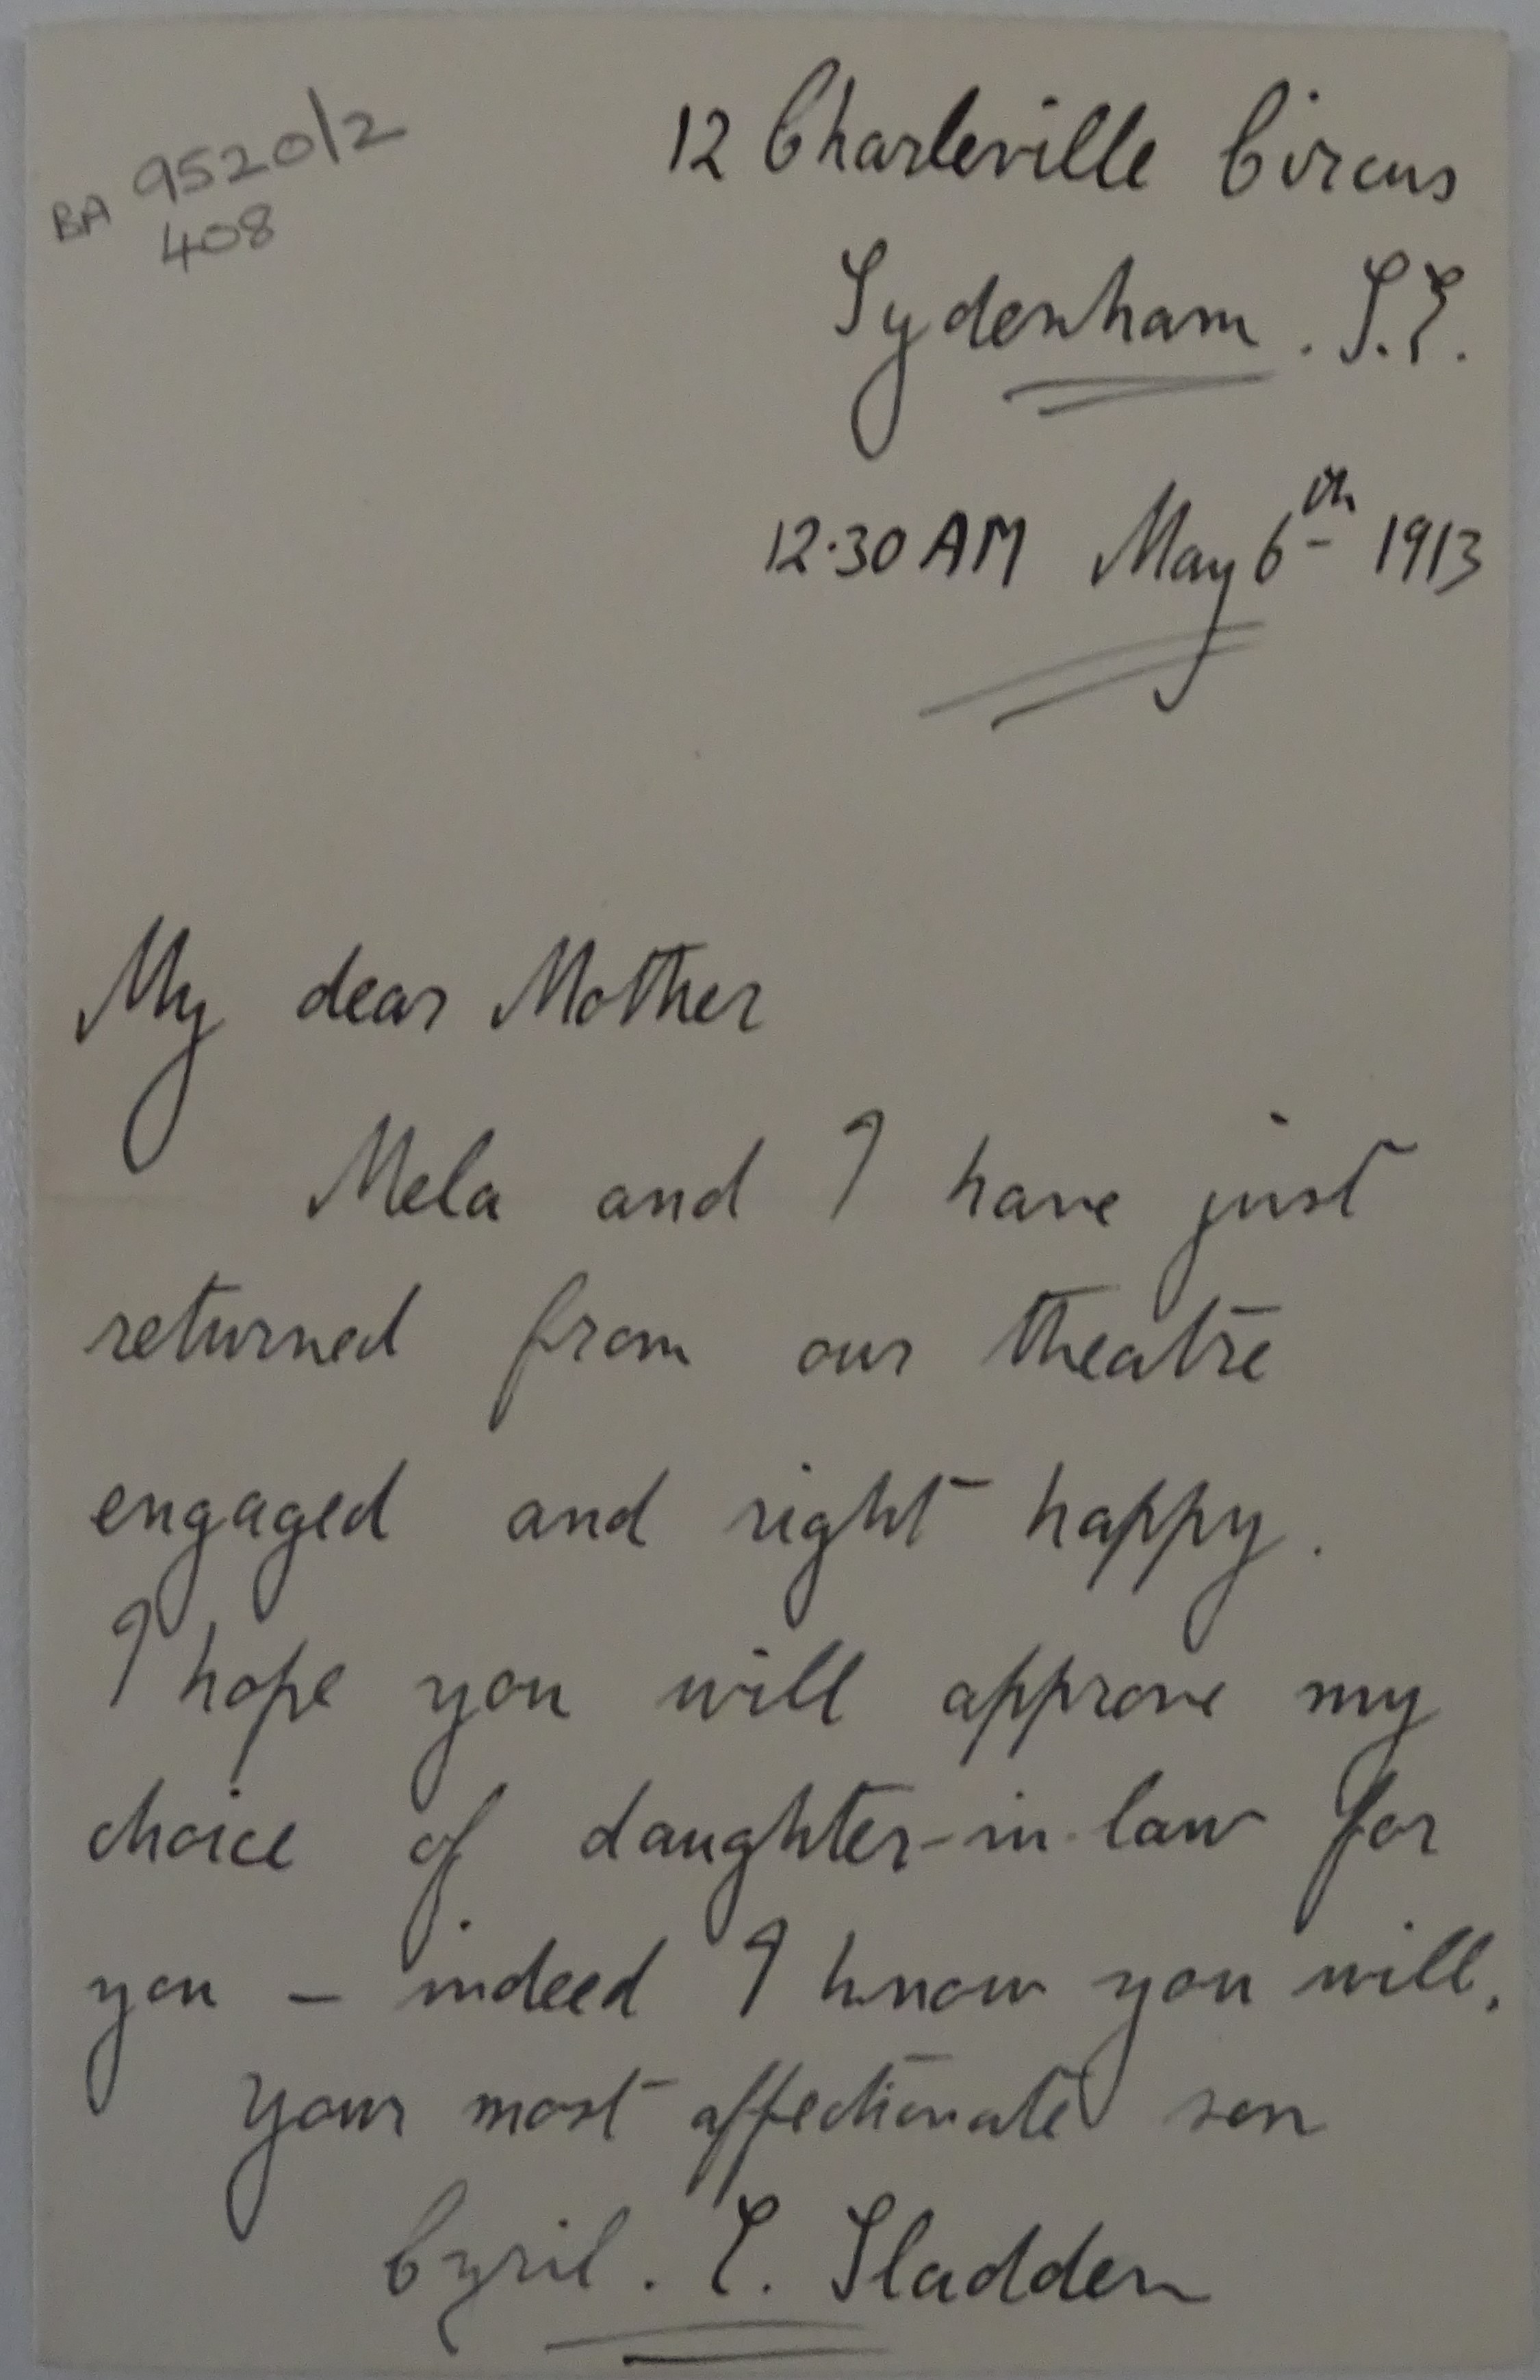 BA 9520/2
408
12 Charleville Circus
Sydenham. S.E.
12.30 AM May 6th 1913
My dear Mother
Mela and I have just
returned from our theatre
engaged and right happy.
I hope you will approve my
choice of daughter-in-law for
you - indeed I know you will.
Your most affectionate son
Cyril. E. Sladden